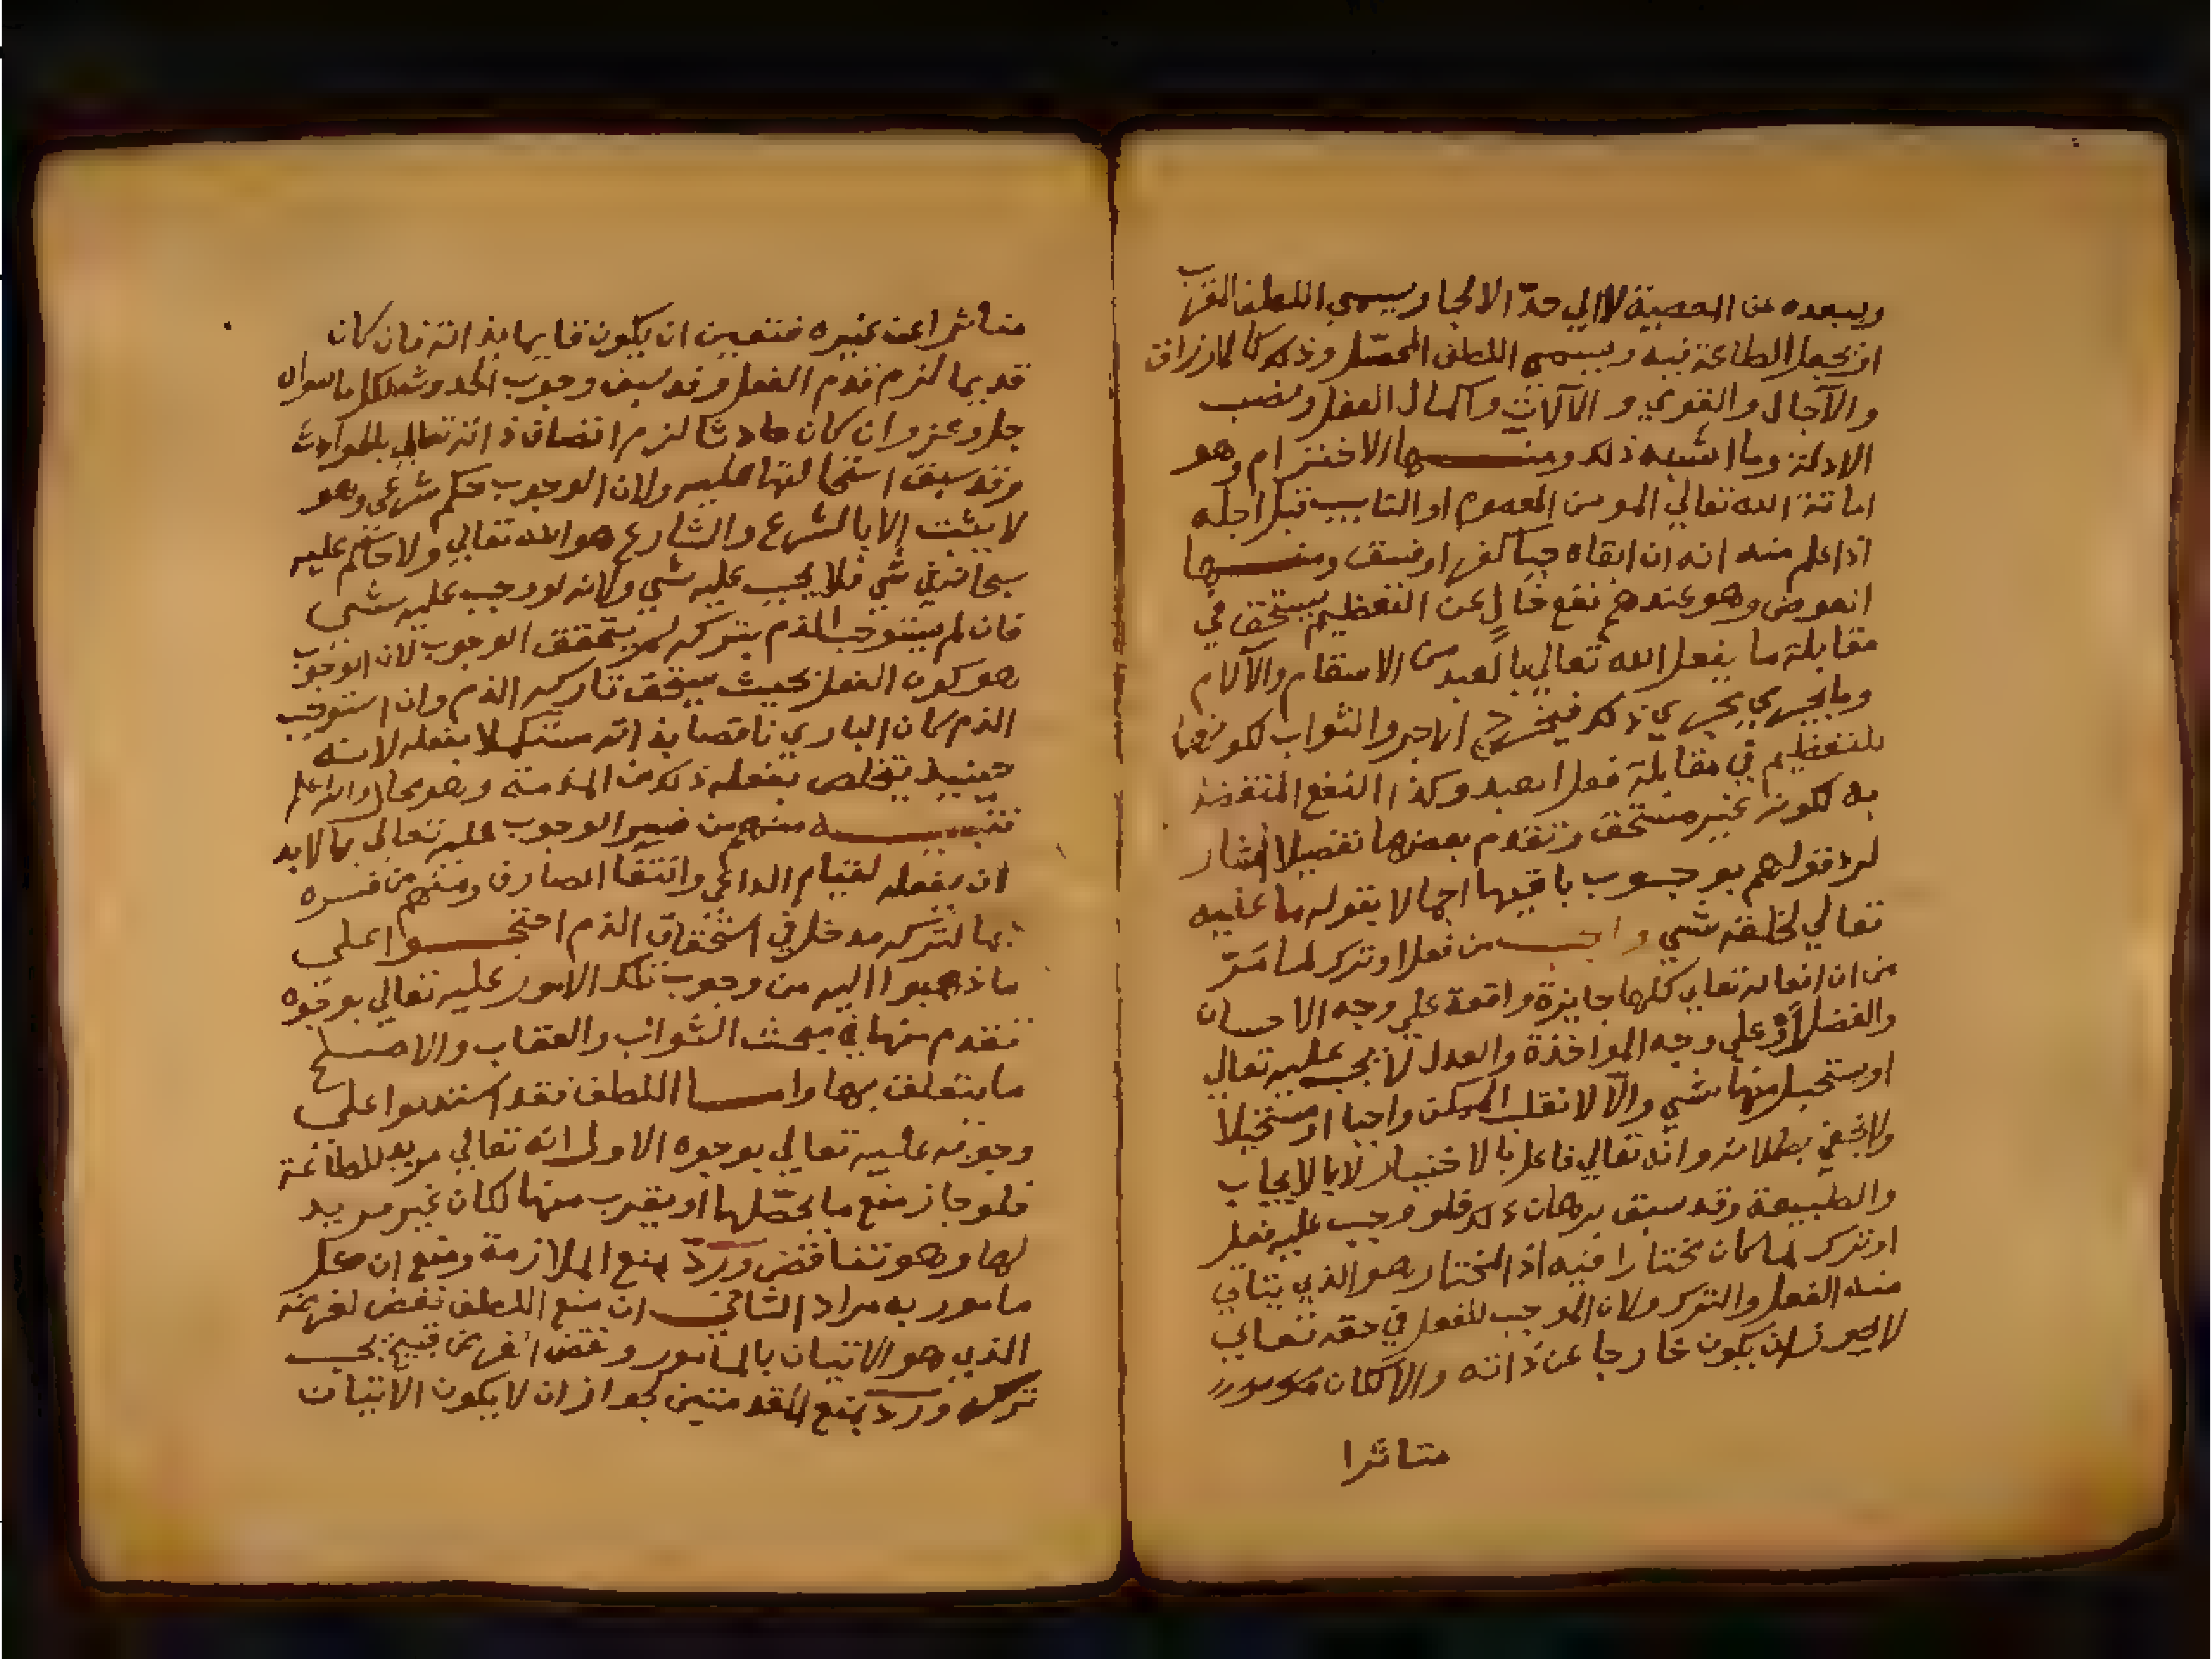 ويبعده عن المعصية لا الي حدّ الالجا ويسمي اللطف المقرّب
او يحصل الطاعة فيه ويسمي اللطف المحصّل وذلك كالارزاق
والآجال والقوي والآلات واكمال العقل ونصب
الادلة وما اشبه ذلك ومنها الاخترام وهو
اماتة الله تعالي المومن المعصوم او التايب قبل اجله
اذا علم منه انه ان ابقاه حيا كفر او فسق ومنها
العوض وهو عندهم نفع خالٍ عن التعظيم يستحق في
مقابلة ما يفعل الله تعالي بالعبد من الاسقام والآلام
وما يجري مجري ذلك فيخرج الاجر والثواب لكونهما
للتعظيم في مقابلة فعل العبد وكذا النفع المتفضل
به لكونه غير مستحق وتقدم بعضها تفصيلا اشار
لرد قولهم بوجوب باقيها اجمالا بقوله ما عليه
تعالي لخلقه شي واجب من فعل او ترك لما مَرّ
من ان افعاله تعالي كلها جايزة واقعة علي وجه الاحسان
والفضل أو علي وجه المواخذة والعدل لا يجب عليه تعالي
او يستحيل منها شي والّا لانقلب الممكن واجبا او مستحيلا
ولا يخفي بطلانه وانه تعالي فاعل بالاختيار لا بالايجاب
والطبيعة وقد سبق برهان ذلك فلو وجب عليه فعل
او ترك لما كان مختارا فيه اذ المختار هو الذي يتاتي
منه الفعل والترك ولان الموجب للفعل في حقه تعالي
لا يجوز ان يكون خارجا عن ذاته والا لكان
متاثرا
متاثرا عن غيره فتعين ان يكون قايما بذاته فان كان
قديما لزم قدم الفعل وقد سبق وجوب الحدوث لكل ما سواه
جل وعز وان كان حادثا لزم اتصاف ذاته تعالي بالحوادث
وقد سبق استحالتها عليه ولان الوجوب حكم شرعي وهو
لا يثبت إلا بالشرع والشارع هو الله تعالي ولا حاكم عليه
سبحانه في شي فلا يجب عليه شي ولانه لو وجب عليه شي
فان لم يستوجب الذم بتركه لم يتحقق الوجوب لان الوجوب
هو كون الفعل بحيث يستحق تاركه الذم وان استوجب
الذم كان الباري ناقصا بذاته مستكملا بفعله لانه
حينيذ يتخلص بفعله ذلك من المذمة وهو محال والله اعلم
تنبيه منهم من فسر الوجوب عليه تعالي بما لا بد
ان يفعله لقيام الداعي وانتفا الصارف ومنهم من فسره
بما لتركه مدخل في استحقاق الذم احتجوا علي
ما ذهبوا اليه من وجوب تلك الامور عليه تعالي بوجوه
تقدم منها في مبحث الثواب والعقاب والاصلح
ما يتعلق بها واما اللطف فقد استدلوا علي
وجوبه عليه تعالي بوجوه الاول انه تعالي مريد للطاعة
فلو جاز منع ما يحصّلها او يقرب منها لكان غير مريد
لها وهو تناقض ورد بمنع الملازمة ومنع ان كل
مامور به مراد الثاني ان منع اللطف نقض لغرضه
الذي هو الاتيان بالمامور ونقض الغرض قبيح يجب
تركه ورد بمنع المقدمتين لجواز ان لا يكون الاتيان